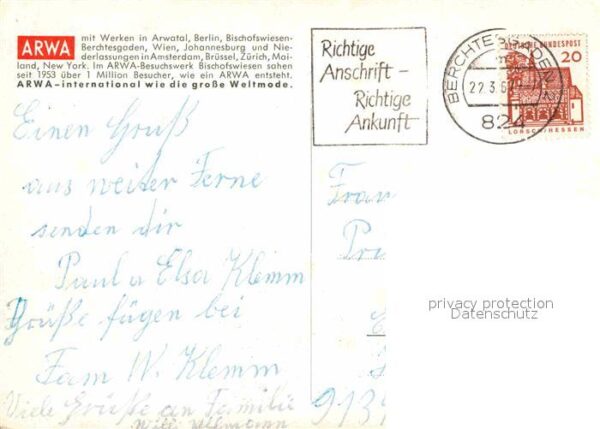 ARWA mit Werken in Arwatal, Berlin, Bischofswiesen-
Berchtesgaden, Wien, Johannesburg und Nie-
derlassungen in Amsterdam, Brüssel, Zürich, Mai-
land, New York. Im ARWA-Besuchswerk Bischofswiesen sahen
seit 1953 über 1 Million Besucher, wie ein ARWA entsteht.
ARWA-international wie die große Weltmode.
Richtige
Anschrift –
Richtige
Ankunft
BERCHTESGADEN
22.3.6
824
DEUTSCHE BUNDESPOST
20
LORSCH/HESSEN
Einen Gruß
aus weiter Ferne
senden dir
Paul u Elsa Klemm
Grüße fügen bei
Fam W. Klemm
Viele Grüße an Familie
Willi Ullmann
Frau
privacy protection
Datenschutz